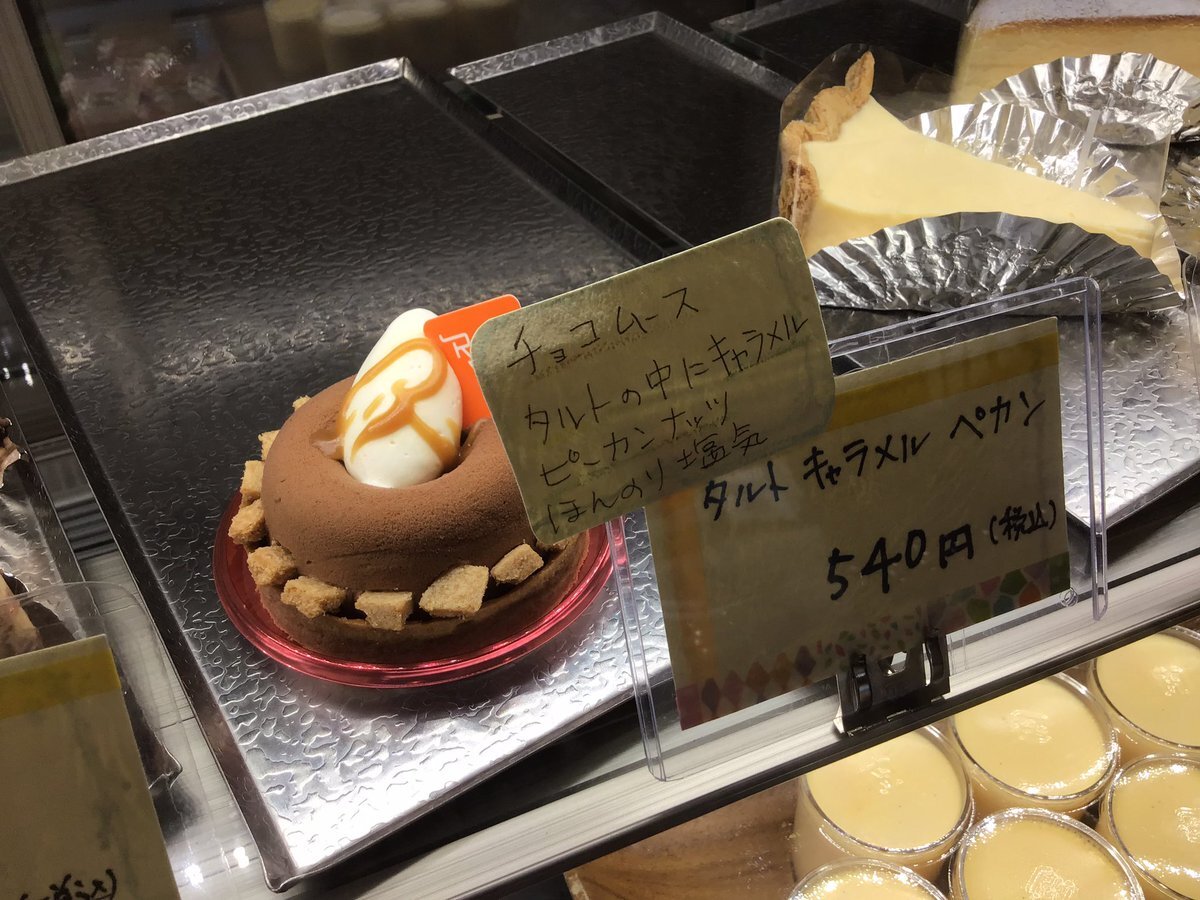 チョコムース
タルトの中にキャラメル
ピーカンナッツ
ほんのり塩気
タルト キャラメル ペカン
540円(税込)